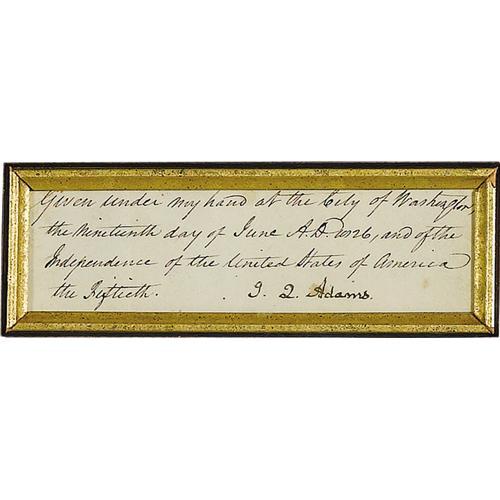 Given under my hand at the City of Washington,
the Nineteenth day of June A.D. 1826, and of the
Independence of the United States of America
the Fiftieth. J. Q. Adams.